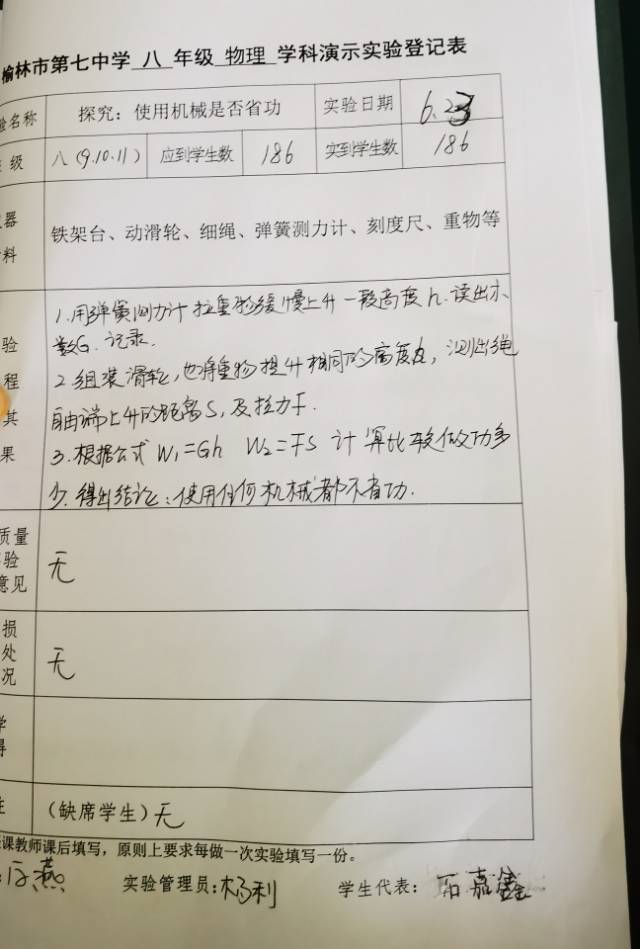 榆林市第七中学 八 年级 物理 学科演示实验登记表
验名称 探究：使用机械是否省功 实验日期 6.23
级 八（9.10.11） 应到学生数 186 实到学生数 186
器
料
铁架台、动滑轮、细绳、弹簧测力计、刻度尺、重物等
验
程
其
果
1.用弹簧测力计拉重物缓慢上升一段高度h.读出示
数G.记录.
2.组装滑轮，也将重物提升相同的高度h，测出绳
自由端上升的距离S，及拉力F.
3.根据公式 W₁=Gh W₂=FS 计算比较做功多
少.得出结论：使用任何机械都不省功.
质量
验
意见
无
损
处
况
无
学
得
注 （缺席学生）无
课教师课后填写，原则上要求每做一次实验填写一份。
燕 实验管理员：杨利 学生代表：石嘉鑫